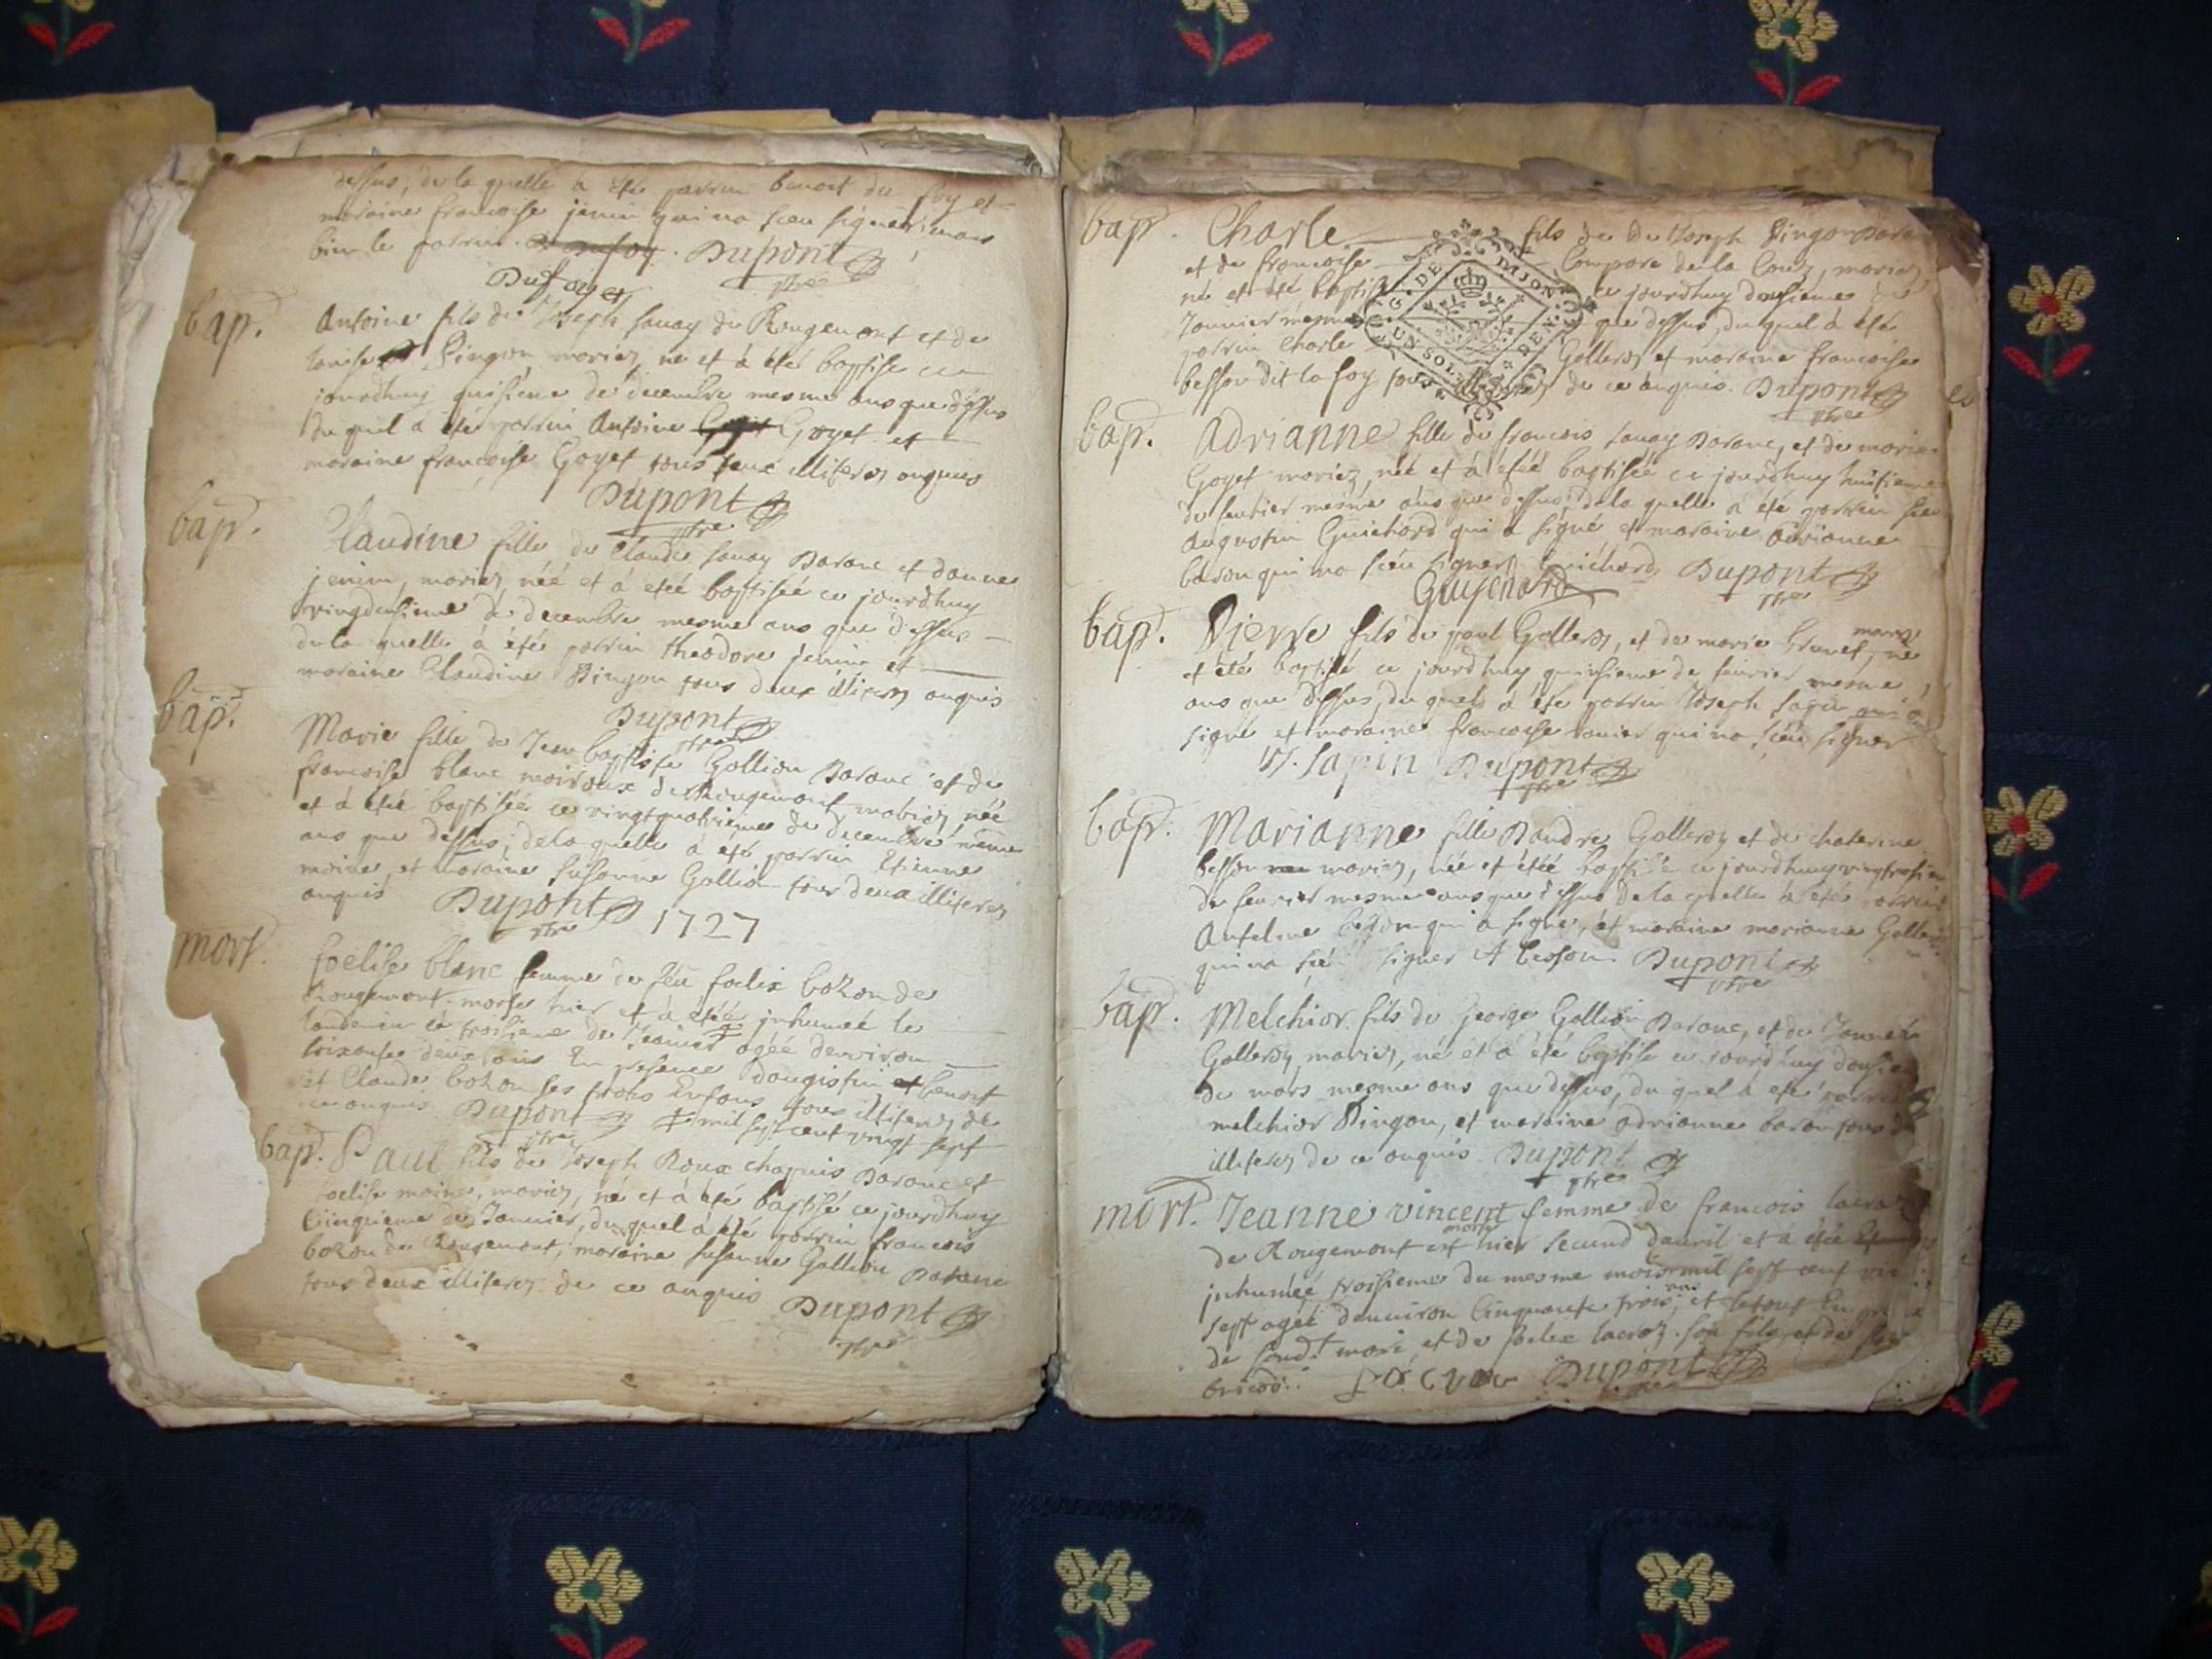 dessus, de la quelle à été parrin benoit du foy et
maraine francoise jenin qui na sceu signer mais
bien le parrin. Dupont
Dufoy ptre
bap.
Antoine fils de Joseph sauay de Rougemont et de
louise Pingon mariez, né et à été baptise ce
jourdhuy quisieme de decembre mesme ans que dessus
du quel à été parrin Antoine Goyet et
maraine francoise Goyet tous deux illiterez enquis
Dupont
ptre
bap.
Claudine fille de Claude sauay Daranc et danne
jenin, mariez, néé et à étéé baptiséé ce jourdhuy
vingdeusieme de decembre mesme ans que dessus
de la quelle à été parrin theodore jenin et
maraine Claudine Pingon tous deux illiterez enquis
Dupont
ptre
bap.
Marie fille de Jean baptiste Gallion Daranc et de
francoise blanc moiroux de Rougemont mariez néé
et à étéé baptiséé ce vingtquatrieme de decembre meme
ans que dessus; de la quelle à été parrin Etienne
moine, et maraine susanne Gallion tous deux illiterez
anquis Dupont
ptre
1727
mort.
foelise blanc femme de feu foelix bozon de
Rougemont morte hier et à étéé inhuméé le
landemain ce troisieme de Jeanier agéé denviron
soixante deux ans En presence daugistin benoit
et Claude bozon ses trois Enfans tous illiterez de
ce anquis Dupont mil sept cent vingt sept
ptre
bap. Paul fils de Joseph Roux chapuis Daranc et
foelise moine, mariez, né et à été baptisé ce jourdhuy
Cinquieme de Janvier, du quel à été parrin francois
bozon de Rougemont, maraine susanne Gallion Daranc
tous deux illiterez de ce anquis Dupont
ptre
bap. Charle fils de Joseph Pingon
et de francoise Compare de la Couz, mariez
né et été baptisé ce jourdhuy dousieme de
Janvier mesme que dessus, du quel à été
parrin Charle Galleroz et maraine francoise
besson dit la foy tous de ce anquis. Dupont
ptre
G. DE DIJON
bap. Adrianne fille de francois sauay Daranc, et de marie
Goyet mariez, néé et à étéé baptiséé ce jourdhuy huitieme
de feurier mesme ans que dessus; de la quelle à été parrin
augustin Guichard qui à signé et maraine adrianne
baron qui na sceu signer Guichard Dupont
Guychard ptre
bap. Pierre fils de paul Galleroz, et de marie brunet, mariez né
et été baptisé ce jourdhuy quinsieme de feurier mesme
ans que dessus, du quel à été parrin Joseph sapin qui à
signé et maraine francoise qui na sceu signer
J. Sapin Dupont
ptre
bap. Marianne fille Dandre Galleroz et de chaterine
besson mariez, néé et étéé baptiséé ce jourdhuy vingtroisie
de feurier mesme ans que dessus de la quelle à été parrin
Anselme besson qui à signé, et maraine marianne
qui na sceu signer A besson Dupont
ptre
bap. Melchior fils de George Gallion Daranc, et de
Galleroz mariez, né et à été baptisé ce jourdhuy
de mars mesme ans que dessus, du quel à été
melchior Pingon, et maraine adrianne baron tous
illiterez de ce anquis Dupont
ptre
mort. Jeanne vincent femme de francois
de Rougemont morte hier secund dauril et à étéé
inhuméé troisieme du mesme mois mil sept cent
sept agéé denuiron Cinquante trois ans, et
de sondt mari, et de foelix lacroz son fils, et de
Dupont